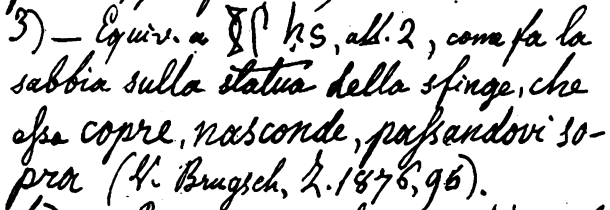 3) – Equiv. a 𓎛𓋴 ḥs, att. 2, come fa la
sabbia sulla statua della sfinge, che
essa copre, nasconde, passandovi so-
pra (V. Brugsch, Z. 1876, 96).